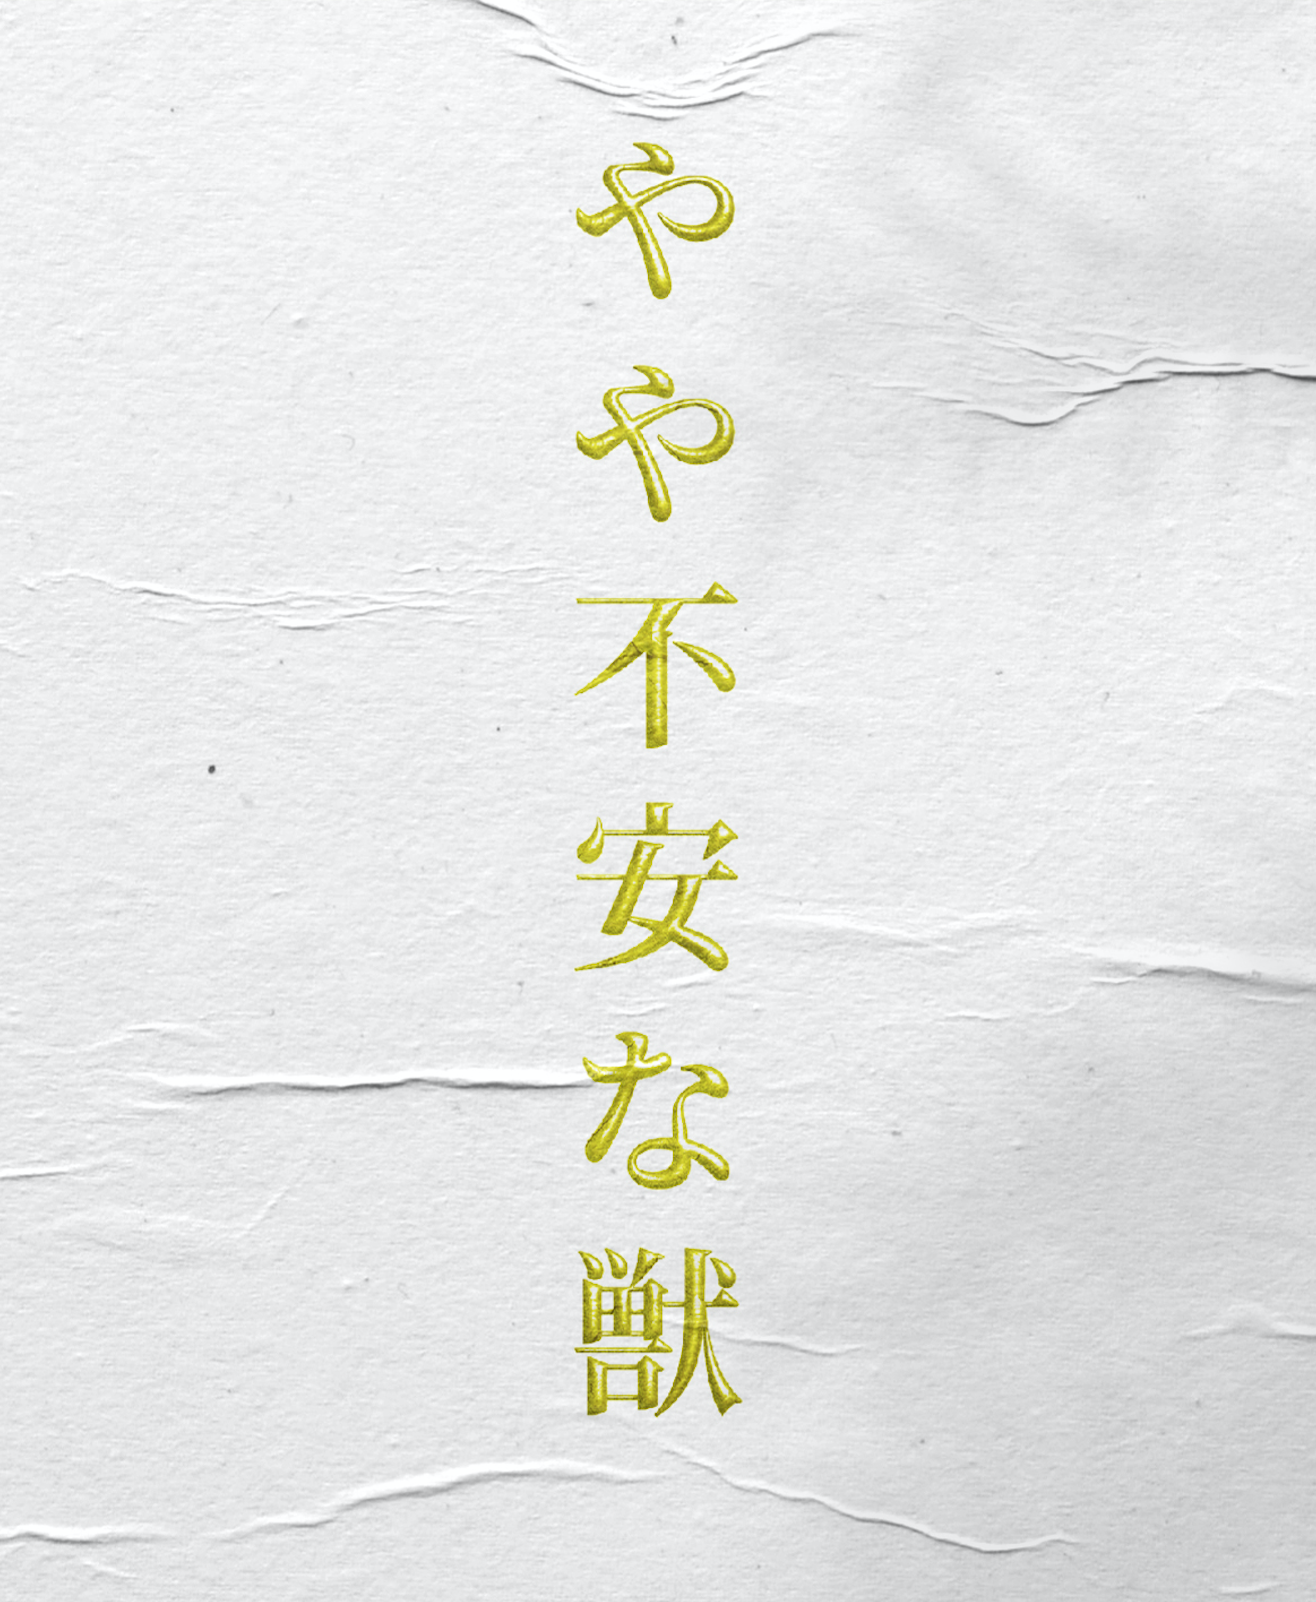 やや不安な獣